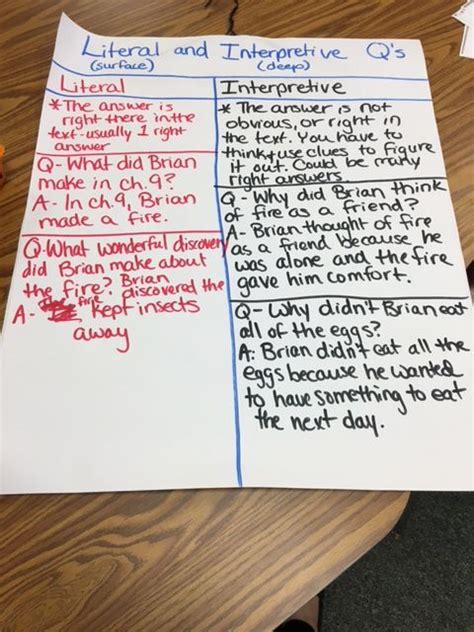 Literal and Interpretive Q's
(surface) (deep)
Literal
* The answer is
right there in the
text - usually 1 right
answer
Q- What did Brian
make in ch.9?
A- In ch.9, Brian
made a fire.
Q- What wonderful discovery
did Brian make about
the fire? Brian
discovered the
A- fire kept insects
away
Interpretive
* The answer is not
obvious, or right in
the text. You have to
think + use clues to figure
it out. Could be many
right answers
Q- Why did Brian think
of fire as a friend?
A- Brian thought of fire
as a friend because he
was alone and the fire
gave him comfort.
Q- Why didn't Brian eat
all of the eggs?
A: Brian didn't eat all the
eggs because he wanted
to have something to eat
the next day.